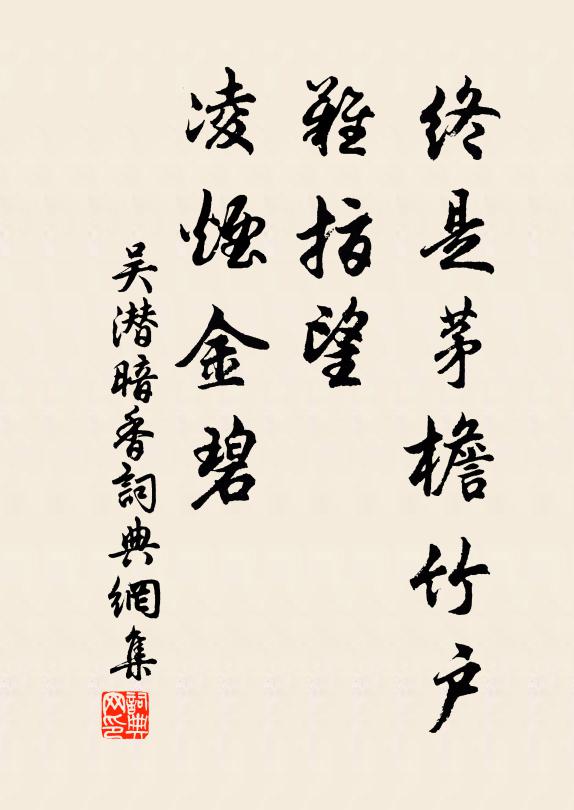 终是茅檐竹户
難指望
凌煙金碧
吴潜暗香詞典網集
詞典
网印